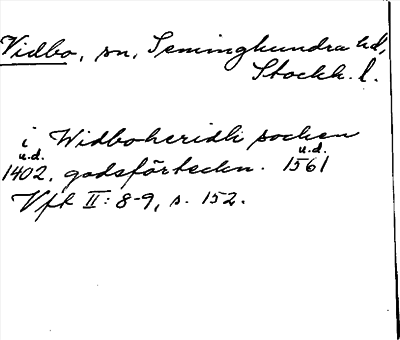 Vidbo, sn, Seminghundra hd,
Stockh. l.
i Widboheridh socken
u.d. u.d.
1402, godsförteckn. 1561
Vfk II: 8-9, s. 152.